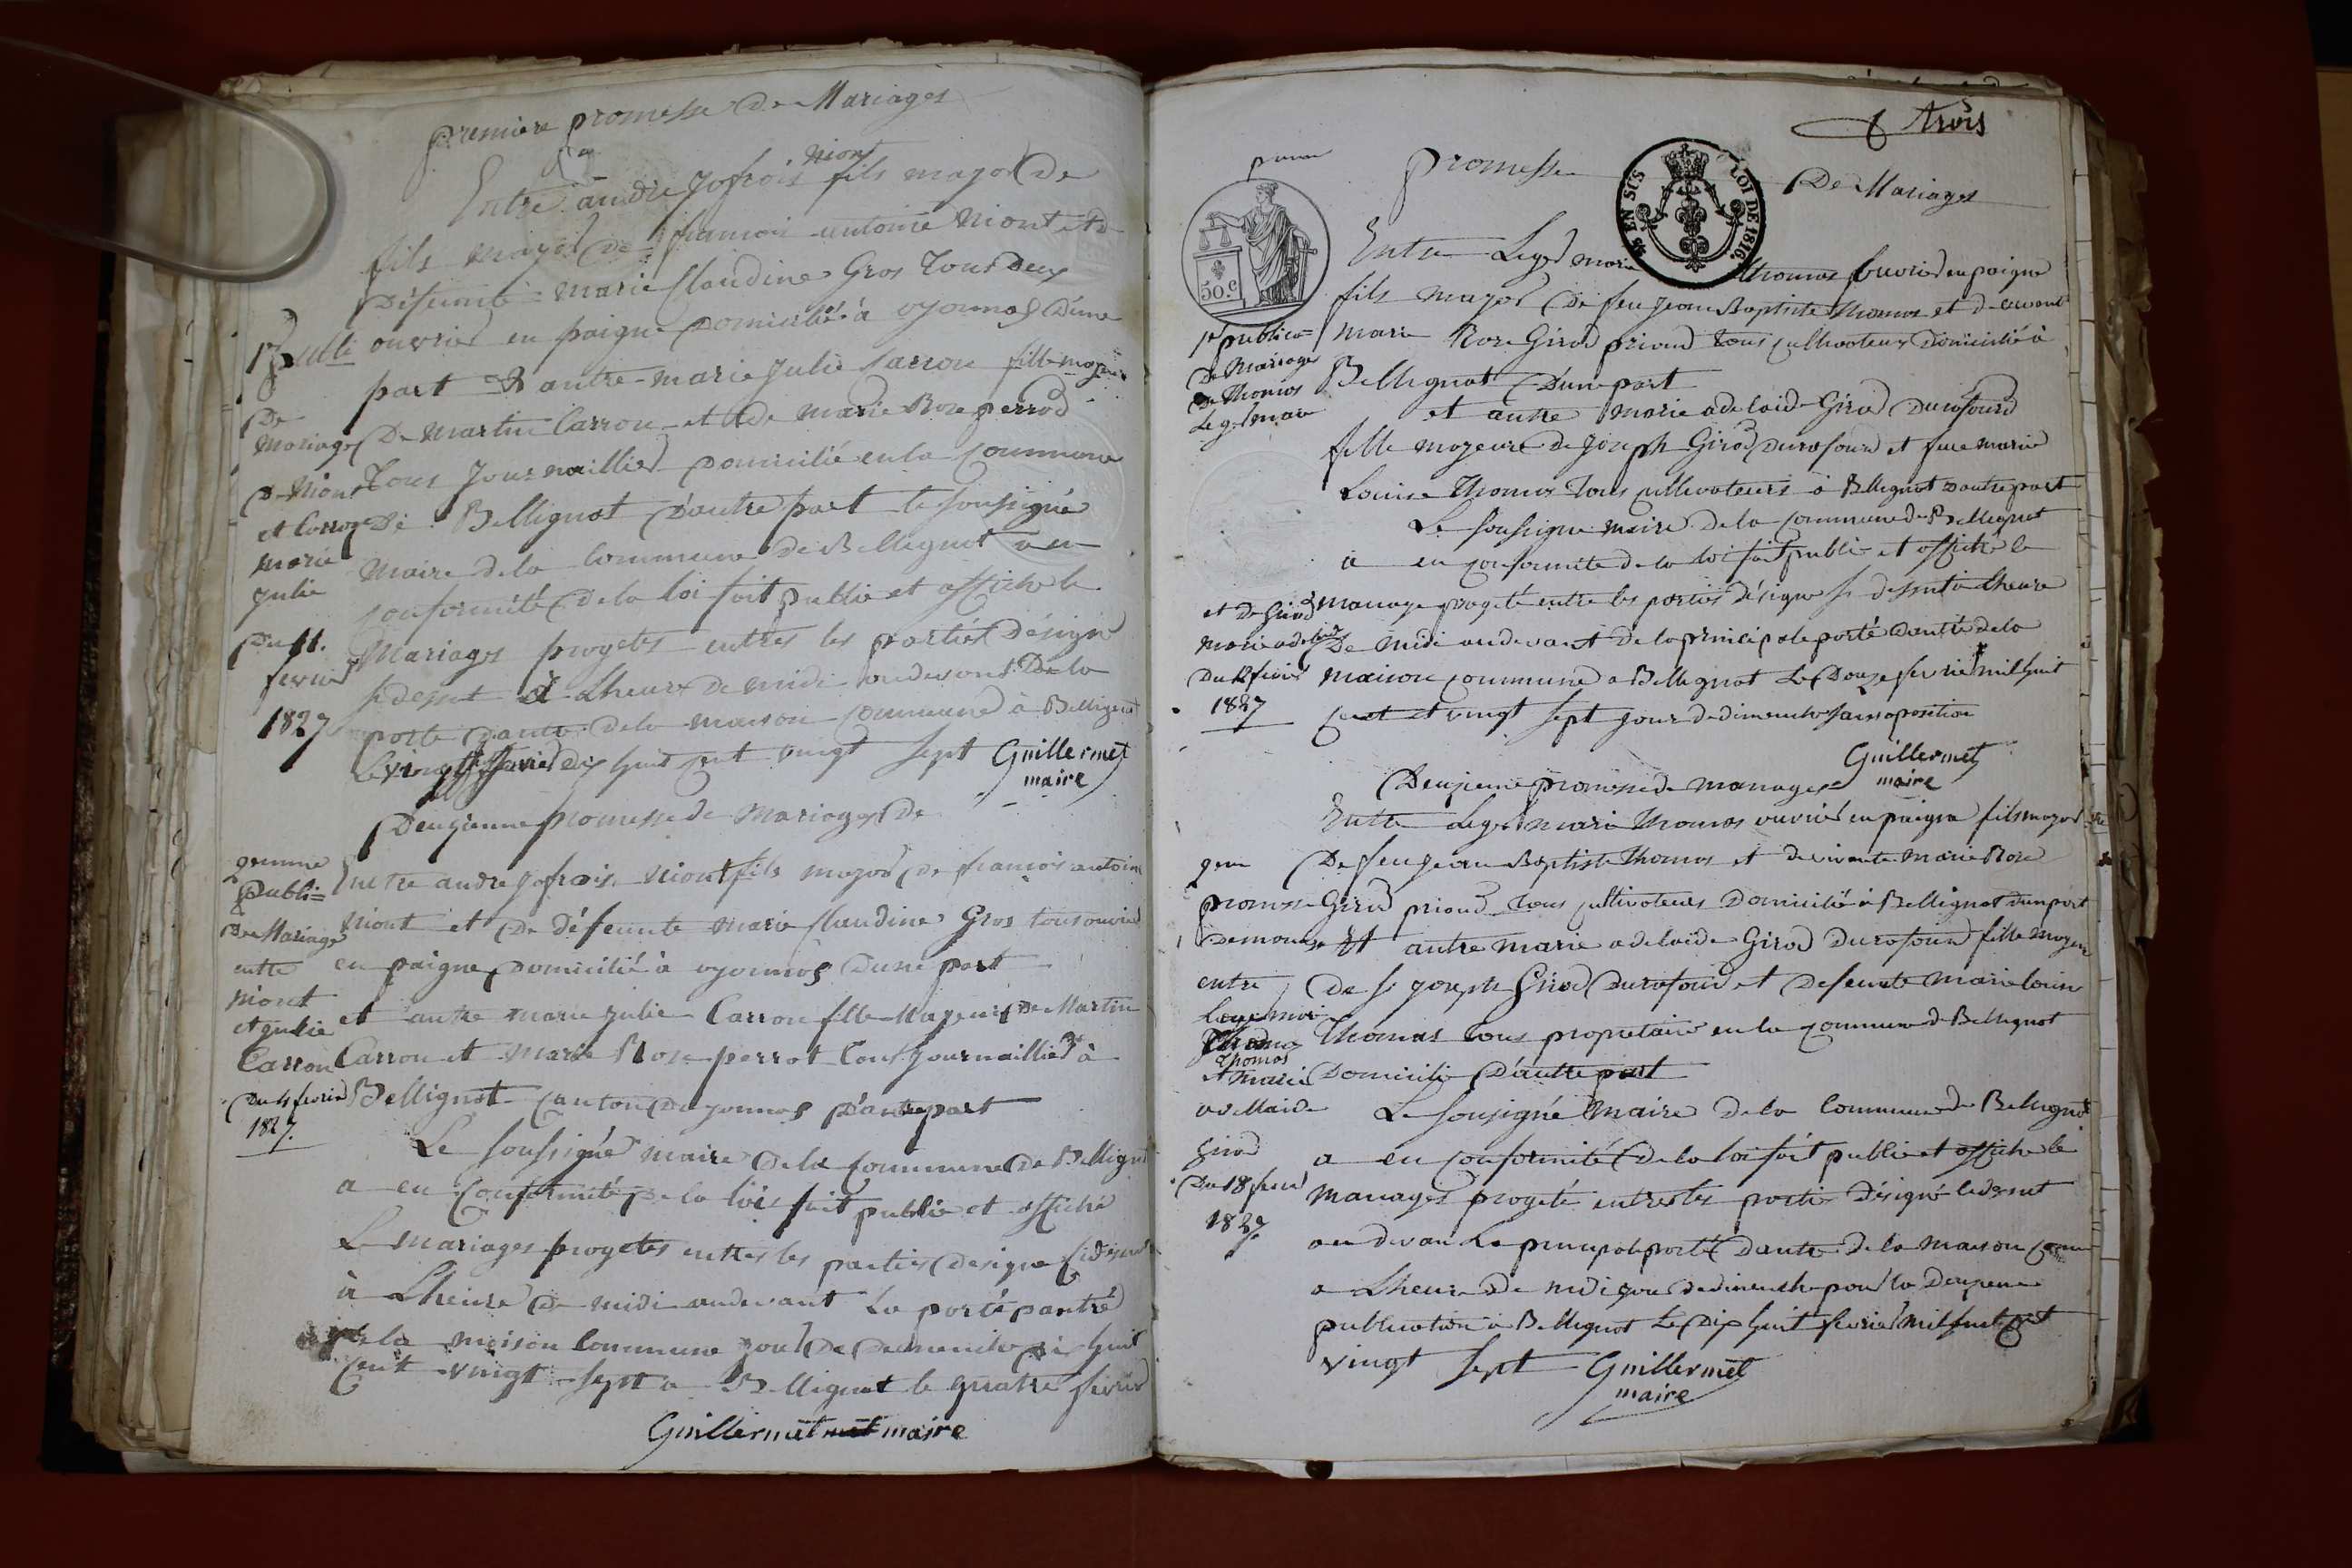 première promesse De Mariages
Entre andre Jofrois Niont fils major De
fils major de francois antoine Niont et de
Défeunte marie Claudine Gros Tous Deux
ouvrier en paigne Domicilié à oyonnas D'une
part Et autre marie Julie Carron fille majeur
De Martin Carron et de marie Rose perrod
Tous Journaillier Domicilié en la Commune
De Bellignat D'autre part le soussigné
Maire de la Commune de Bellignat a en
Conformité de la loi fait publié et affiché le
Mariages progetes entres les parties Désigné
si dessut à Lheure De midi audevant De la
porte d'antré de la maison Commune à Bellignat
huit cent vingt sept Guillermet
maire
1r publi
De
Mariages
De Niont
et Carron
marie
julie
Du
fevrier
1827
Deuzienne promesse de Mariages De
Entre andre Jofrois Niont fils major de francois antoine
Niont et De défeunte marie Claudine Gros tous ouvrier
en paigne Domicilié à oyonnas D'une part
et autre marie julie Carron fille Mageur De Martin
Carron et Marie Rose perrot tous journaillier à
Bellignat Canton D'oyonnas D'autre part
Le soussigné maire De la Commune De Bellignat
a en Conformité De la lois fait publié et affiché
Le mariages progetes entres les parties designe Cidesut
à Lheure De midi audevant La porte d'antré
de la maison Commune jour De Dimenche huit
Cent vingt sept a Bellignat le quatre fevrier
Guillermet maire
2eme
Publi=
De Mariage
entre
Niont
et julie
Carron
Du 4 fevrier
1827.
trois
promesse De Mariages
EN SUS
LOI DE 1816.
50.c
Entre Leger marie thomas ouvrier en paigne
fils major De feu jean Baptiste thomas et de vivante
marie Rose Girod priond tous cultivateur Domicilié à
Bellignat D'une part
et autre marie adelaide Girod Durafourd
fille mageure de joseph Girod Durafourd et feue marie
Louise Thomas Tous cultivateurs à Bellignat D'autre part
Le soussigné maire de la Commune de Bellignat
a en conformité de la loi fait publié et affiché le
mariage progeté entre les parties désigne si dessut à Lheure
De midi audevant de la principale porte d'antré de la
maison commune a Bellignat Le Douze fevrier mil huit
cent et vingt sept jour de dimenche sans oposition
Guillermet
maire
1re publica=
De Mariages
De Thomas
Leger Marie
et De Girod
Marie adelaide
Du 12 fevrier
1827
Deuzieme promesse de mariages
Entre Leger marie Thomas ouvrier en paigne fils major
De feu jean Baptiste Thomas et de vivante marie Rose
Girod priond tous cultivateurs Domicilié à Bellignat D'une part
Et autre marie adelaide Girod Durafourd fille mageure
De joseph Girod Durafourd et Defeunte marie louise
Thomas tous propriétaire en la commune de Bellignat
Domicilié D'autre part
Le Sousigné maire de la Commune de Bellignat
a en conformité De la loi fait publié et affiché le
mariages progeté entres les partie Désigné cidesut
au devan La principale porte D'antré de la maison comu
a Lheure De midi jour de dimenche pour la Deuzieme
publication à Bellignat Le Dix huit fevrier mil huit cent
vingt sept Guillermet
maire
2em
promesse
De mariage
entre
Leger marie
Thomas
et marie
adellaide
Girod
Du 18 fevrier
1827